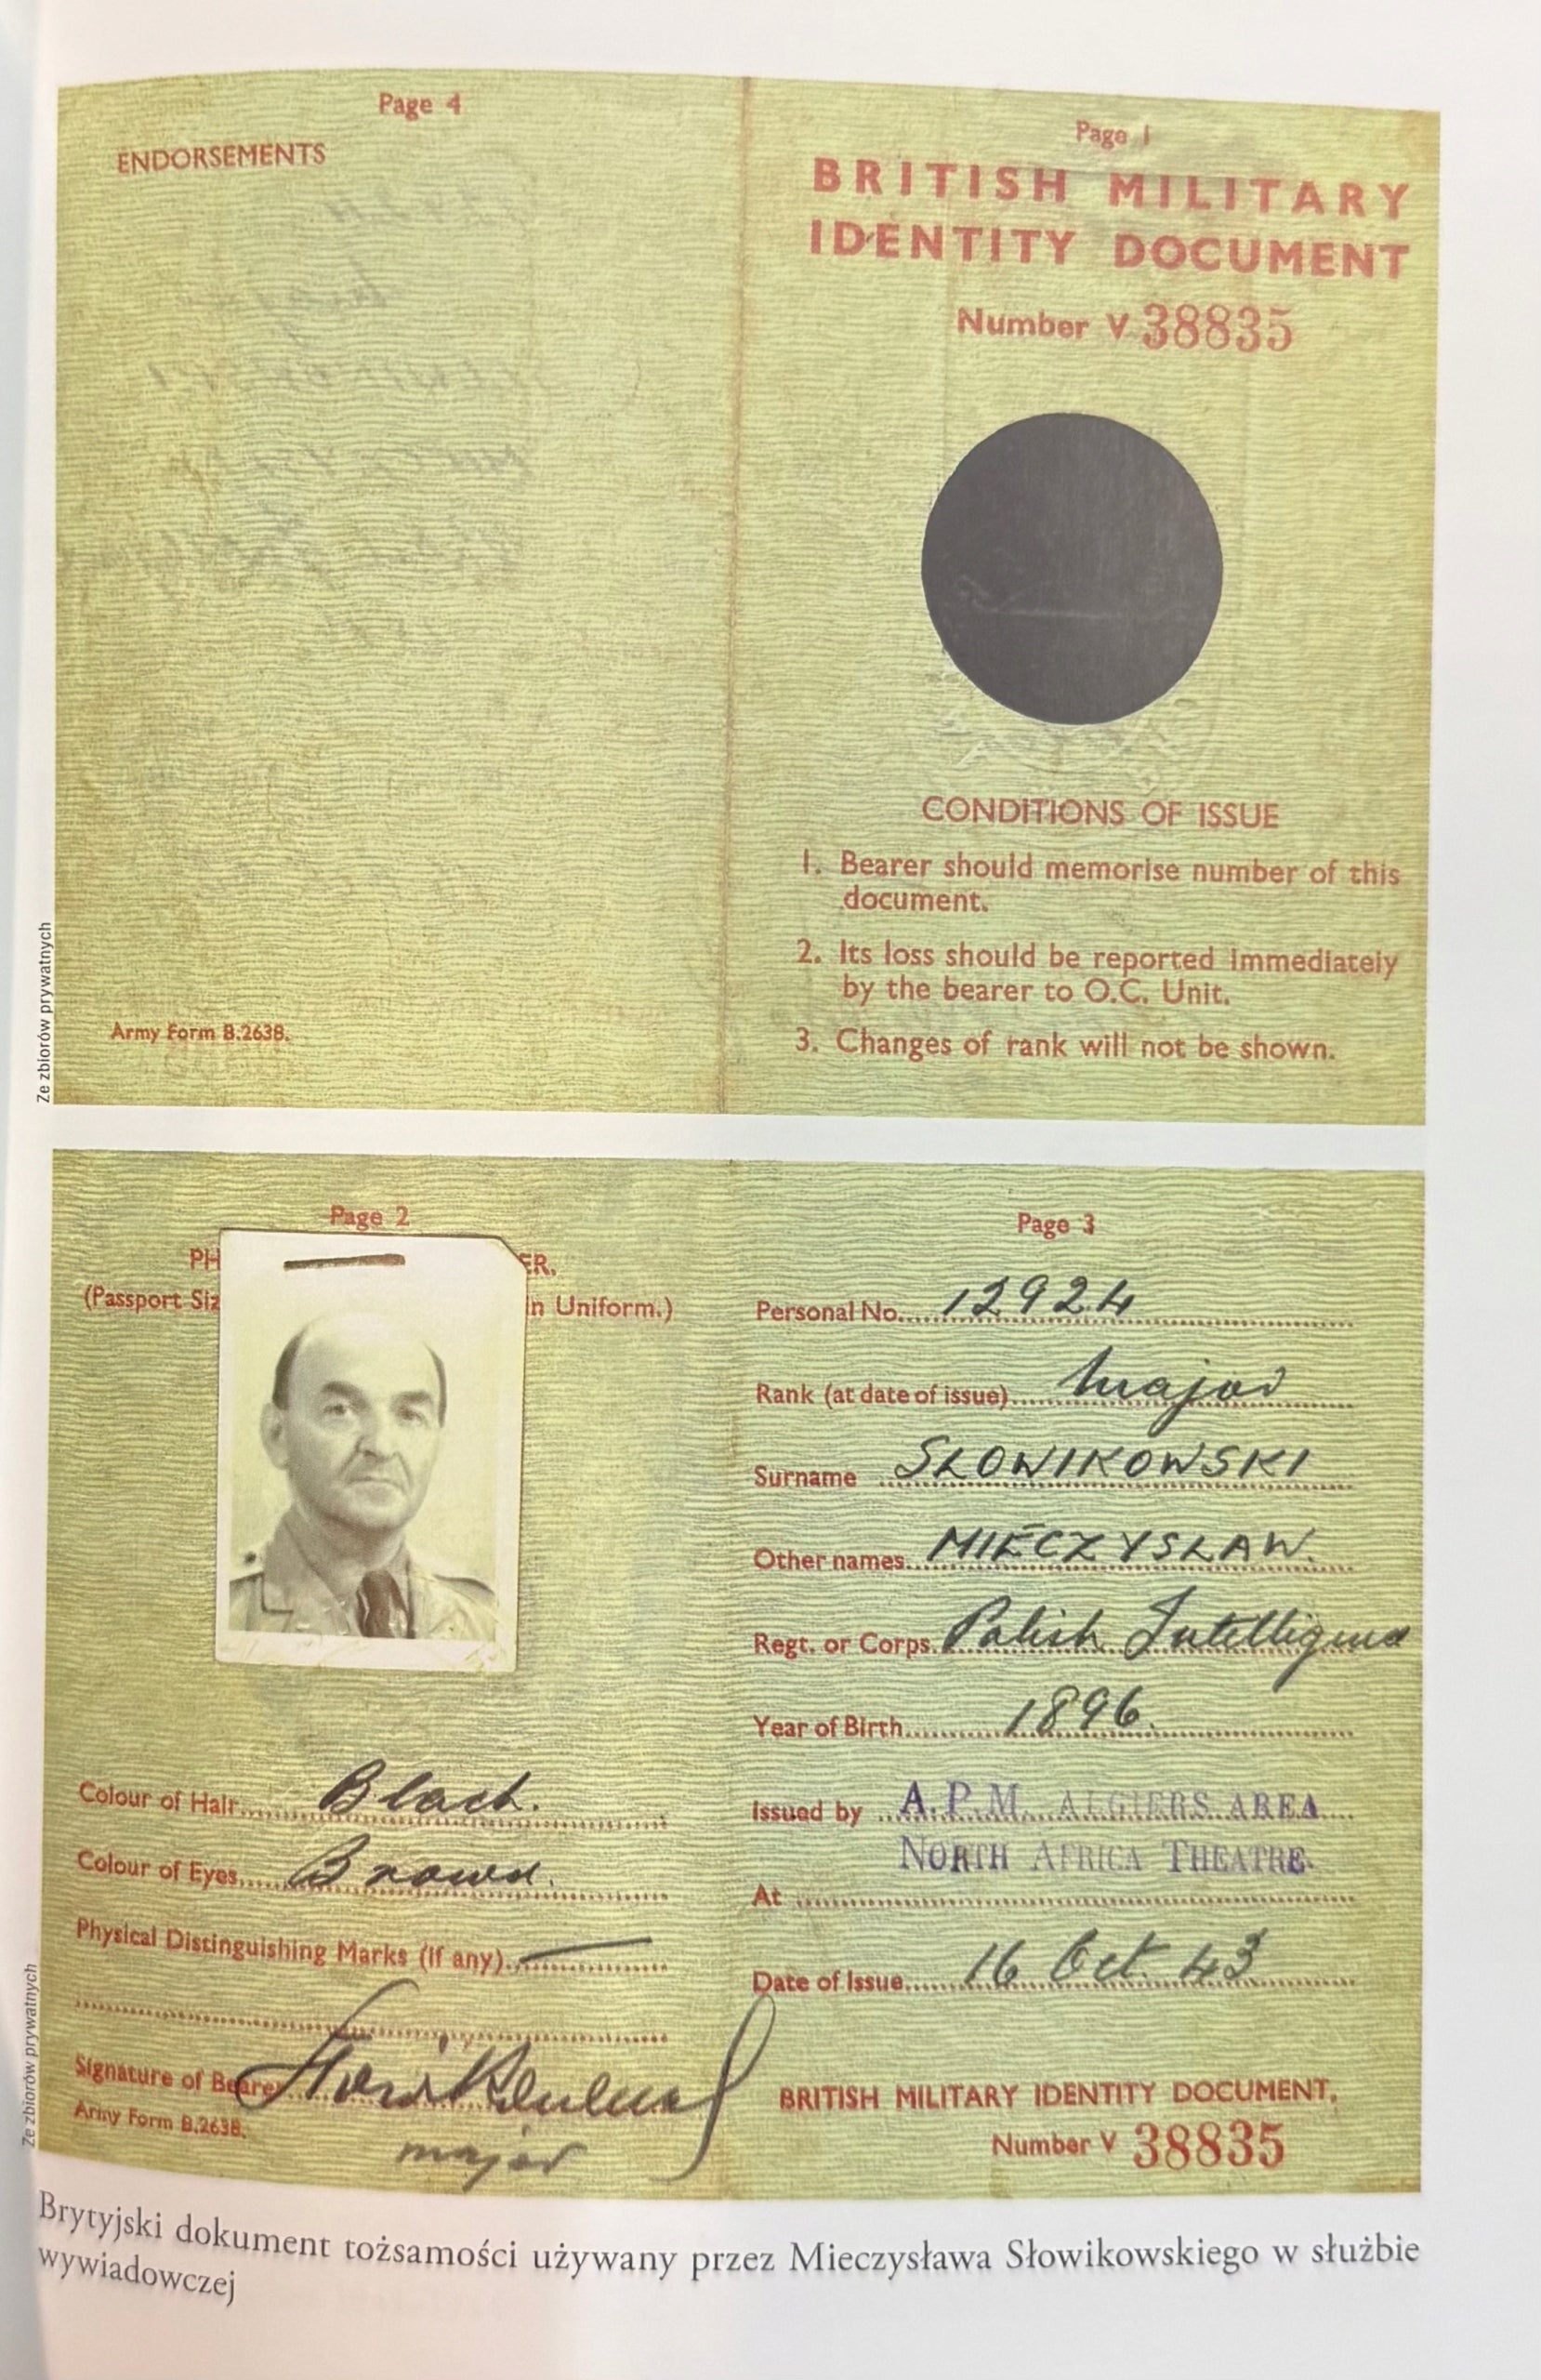 Page 4
ENDORSEMENTS
Army Form B.2638.
Ze zbiorów prywatnych
Page 1
BRITISH MILITARY
IDENTITY DOCUMENT
Number V 38835
CONDITIONS OF ISSUE
1. Bearer should memorise number of this
document.
2. Its loss should be reported immediately
by the bearer to O.C. Unit.
3. Changes of rank will not be shown.
Page 2
(Passport
in Uniform.)
Colour of Hair Black.
Colour of Eyes Brown.
Physical Distinguishing Marks (if any)
Signature of Bearer
major
Army Form B.2638.
Ze zbiorów prywatnych
Page 3
Personal No. 12924
Rank (at date of issue) Major
Surname SŁOWIKOWSKI
Other names MIECZYSŁAW.
Regt. or Corps. Polish Intelligence
Year of Birth 1896.
Issued by A.P.M. ALGIERS AREA
NORTH AFRICA THEATRE.
At
Date of Issue 16 Oct. 43
BRITISH MILITARY IDENTITY DOCUMENT.
Number V 38835
Brytyjski dokument tożsamości używany przez Mieczysława Słowikowskiego w służbie
wywiadowczej